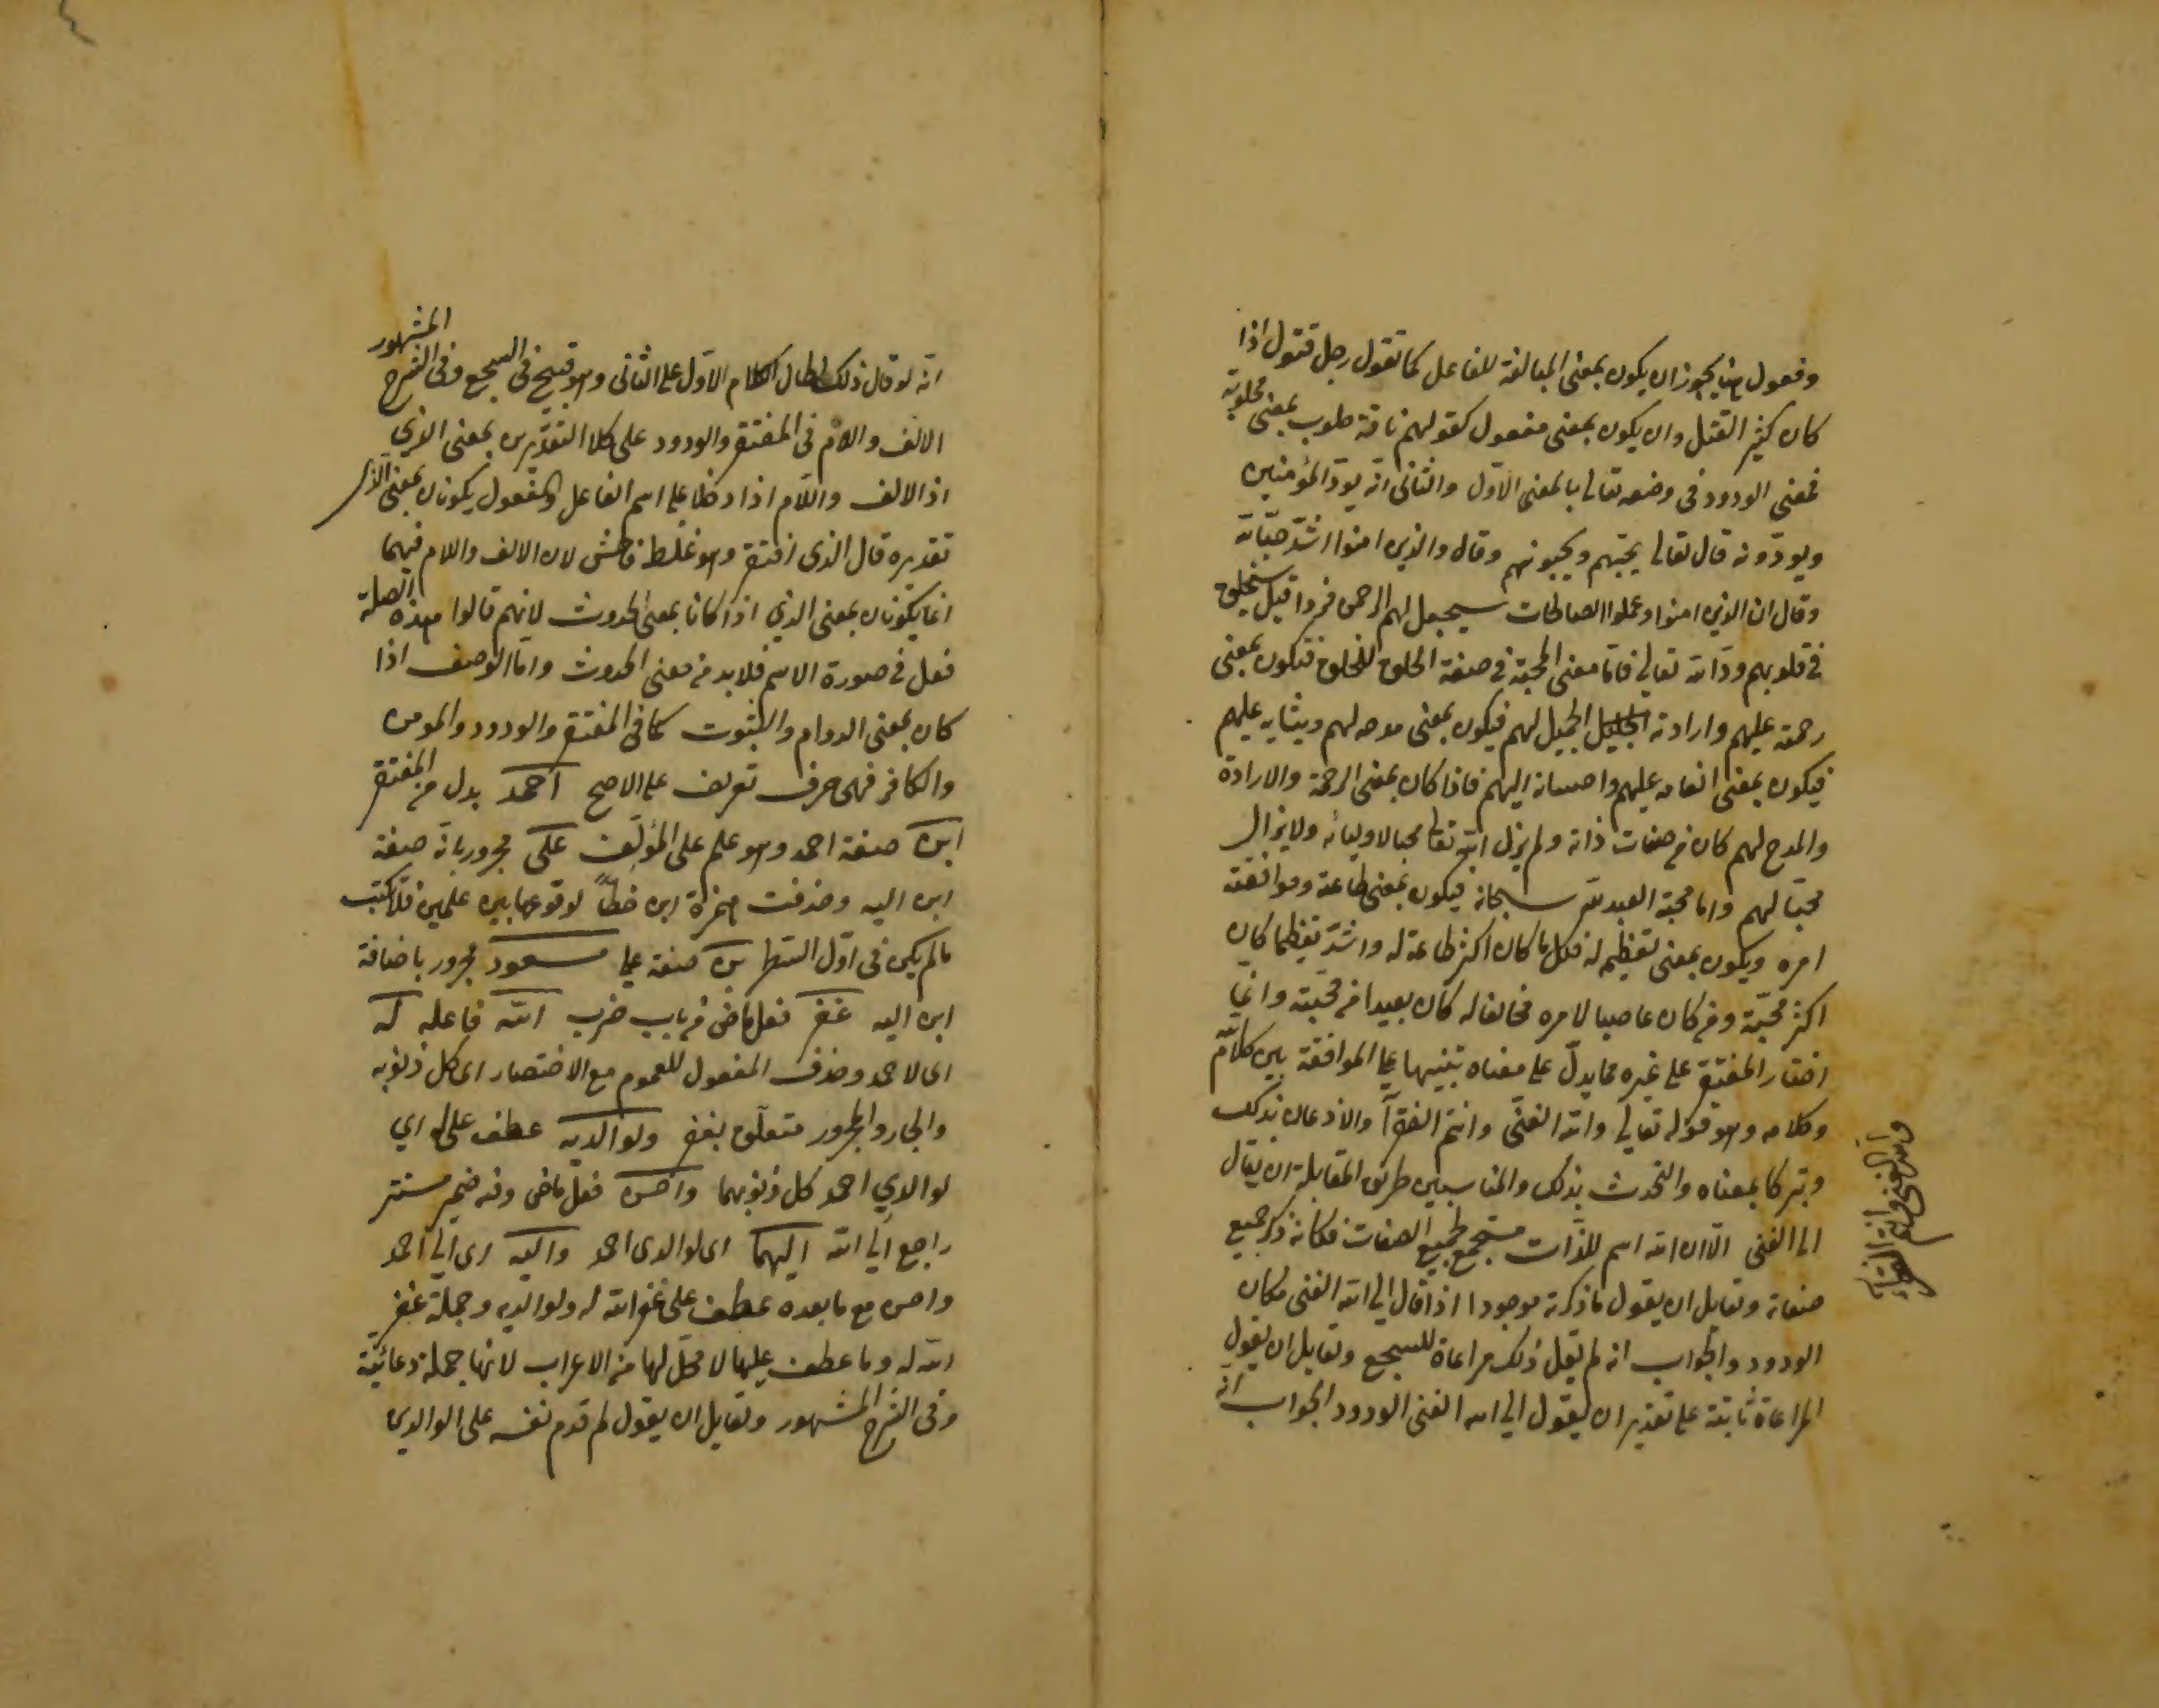 وفعول هنا يجوز ان يكون بمعنى المبالغة للفاعل كما تقول رجل قتول اذا
كان كثير القتل وان يكون بمعنى مفعول كقولهم ناقة حلوب بمعنى محلوبة
فمعنى الودود في وصفه تعالى بالمعنى الاول والثاني انه يودّ المؤمنين
ويودّونه قال تعالى يحبّهم ويحبونهم وقال والذين امنوا اشدّ حبّا لله
وقال ان الذين امنوا وعملوا الصالحات سيجعل لهم الرحمن ودا قيل سيخلق
في قلوبهم ودّا لله تعالى فامّا معنى المحبّة في صفة الخلق للخلق فتكون بمعنى
رحمته عليهم وارادته الجميل لهم فيكون بمعنى مدحه لهم وبثنايه عليهم
فيكون بمعنى انعامه عليهم واحسانه اليهم فاذا كان بمعنى الرحمة والارادة
والمدح لهم كان من صفات ذاته ولم يزل الله تعالى محبا لاوليائه ولا يزال
محبّا لهم واما محبة العبد لله سبحانه فيكون بمعنى طاعته وموافقة
امره ويكون بمعنى تعظيمه له فكل ما كان اكثر طاعة له واشدّ تعظيما كان
اكثر محبّة ومن كان عاصيا لامره مخالفا له كان بعيدا من محبّته وانّما
اختار المفتقر على غيره مما يدلّ على معناه تنبيها على الموافقة بين كلام الله
وكلامه وهو قوله تعالى والله الغنىّ وانتم الفقرآ والاذعان بذلك
وتبركا بمعناه والتحدث بذلك والمناسبين طريق المقابلة ان يقال
الى الغنى الّا ان الله اسم للذّات مستجمع لجميع الصفات فكانه ذكر جميع
صفاته ولقايل ان يقول ما ذكرته موجود اذا قال الى الله الغنى مكان
الودود والجواب انه لم يقل ذلك مراعاة للسجع ولقايل ان يقول
المراعاة ثابتة على تقدير ان يقول الى الله الغنى الودود الجواب انه
والله الغنى وانتم الفقراء
انّه لو قال ذلك لطال الكلام الاوّل على الثانى وهو قبيح في السجع وفى الشرح المشهور
الالف واللام فى المفتقر والودود على كلا التقديرين بمعنى الذي
اذ الالف واللّام اذا دخلا على اسم الفاعل والمفعول يكونان بمعنى الذى
تقديره قال الذى افتقر وهو غلط فاحش لان الالف واللام فيهما
انما يكونان بمعنى الذي اذا كانا بمعنى الحدوث لانهم قالوا هذه الصلة
فعل في صورة الاسم فلا بد من معنى الحدوث وامّا الوصف اذا
كان بمعنى الدوام والثبوت كما فى المفتقر والودود والمومن
والكافر فهى حرف تعريف على الاصح احمد بدل من المفتقر
ابن صفة احمد وهو علم على المؤلّف على مجرور بانّه صفة
ابن اليه وحذفت همزة ابن خطّاً لوقوعها بين علمين فلا تكتب
ما لم يكن فى اوّل السّطر بن صفة على مسعود مجرور باضافة
ابن اليه غفر فعل ماض من باب ضرب الله فاعله له
اى لاحمد وحذف المفعول للعموم مع الاختصار اى كل ذنوبه
والجار والمجرور متعلّق بغفر ولوالديه عطف على له اي
لوالدي احمد كل ذنوبهما واحسن فعل ماض وفيه ضمير مستتر
راجع الى الله اليهما اى لوالدى احمد واليه اى الى احمد
واحسن مع ما بعده عطف على غفر الله له ولوالديه وجملة غفر
الله له وما عطف عليها لا محلّ لها من الاعراب لانها جملة دعائيّة
وفى الشرح المشهور ولقايل ان يقول لم قدم نفسه على الوالدين